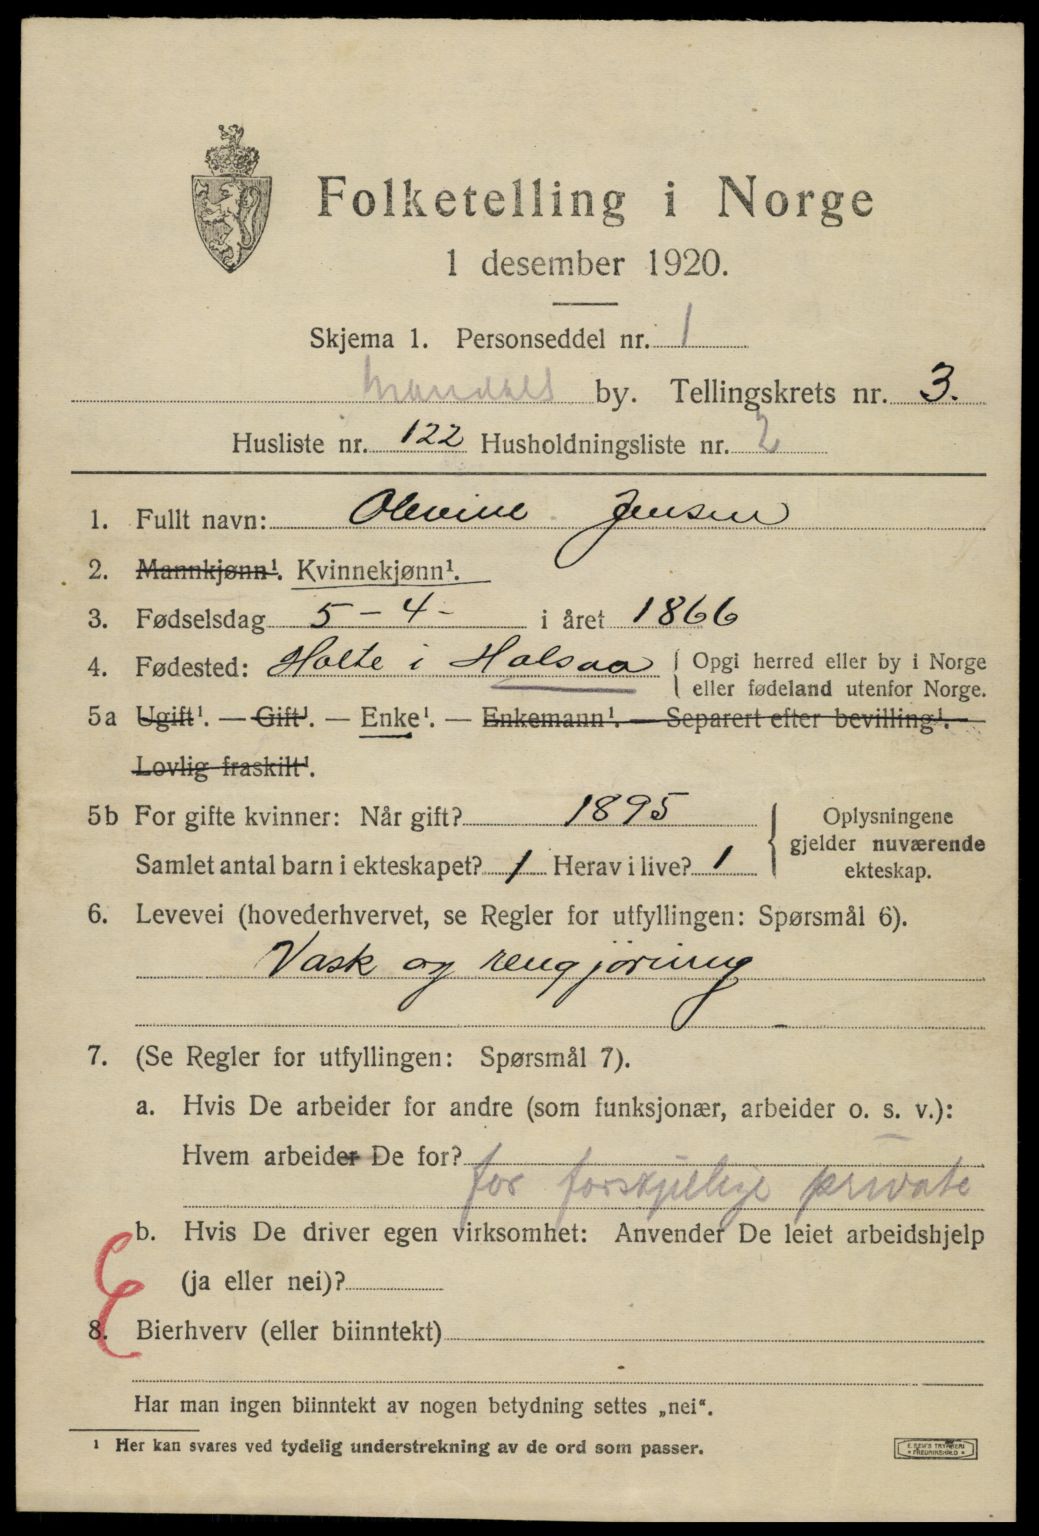 Folketelling i Norge
1 desember 1920.
Skjema 1. Personseddel nr. 1
Mandals by. Tellingskrets nr. 3.
Husliste nr. 122 Husholdningsliste nr. 2
1. Fullt navn: Olevine Jensen
2. Mannkjønn¹. Kvinnekjønn¹.
3. Fødselsdag 5-4- i året 1866
4. Fødested: Holte i Halsaa { Opgi herred eller by i Norge
eller fødeland utenfor Norge.
5a Ugift¹. — Gift¹. — Enke¹. — Enkemann¹. — Separert efter bevilling¹. —
Lovlig fraskilt¹.
5b For gifte kvinner: Når gift? 1895
Samlet antal barn i ekteskapet? 1 Herav i live? 1
Oplysningene
gjelder nuværende
ekteskap.
6. Levevei (hovederhvervet, se Regler for utfyllingen: Spørsmål 6).
Vask og rengjöring
7. (Se Regler for utfyllingen: Spørsmål 7).
a. Hvis De arbeider for andre (som funksjonær, arbeider o. s. v.):
Hvem arbeider De for?
for forskjellige private
b. Hvis De driver egen virksomhet: Anvender De leiet arbeidshjelp
(ja eller nei)?
8. Bierhverv (eller biinntekt)
Har man ingen biinntekt av nogen betydning settes „nei“.
¹ Her kan svares ved tydelig understrekning av de ord som passer.